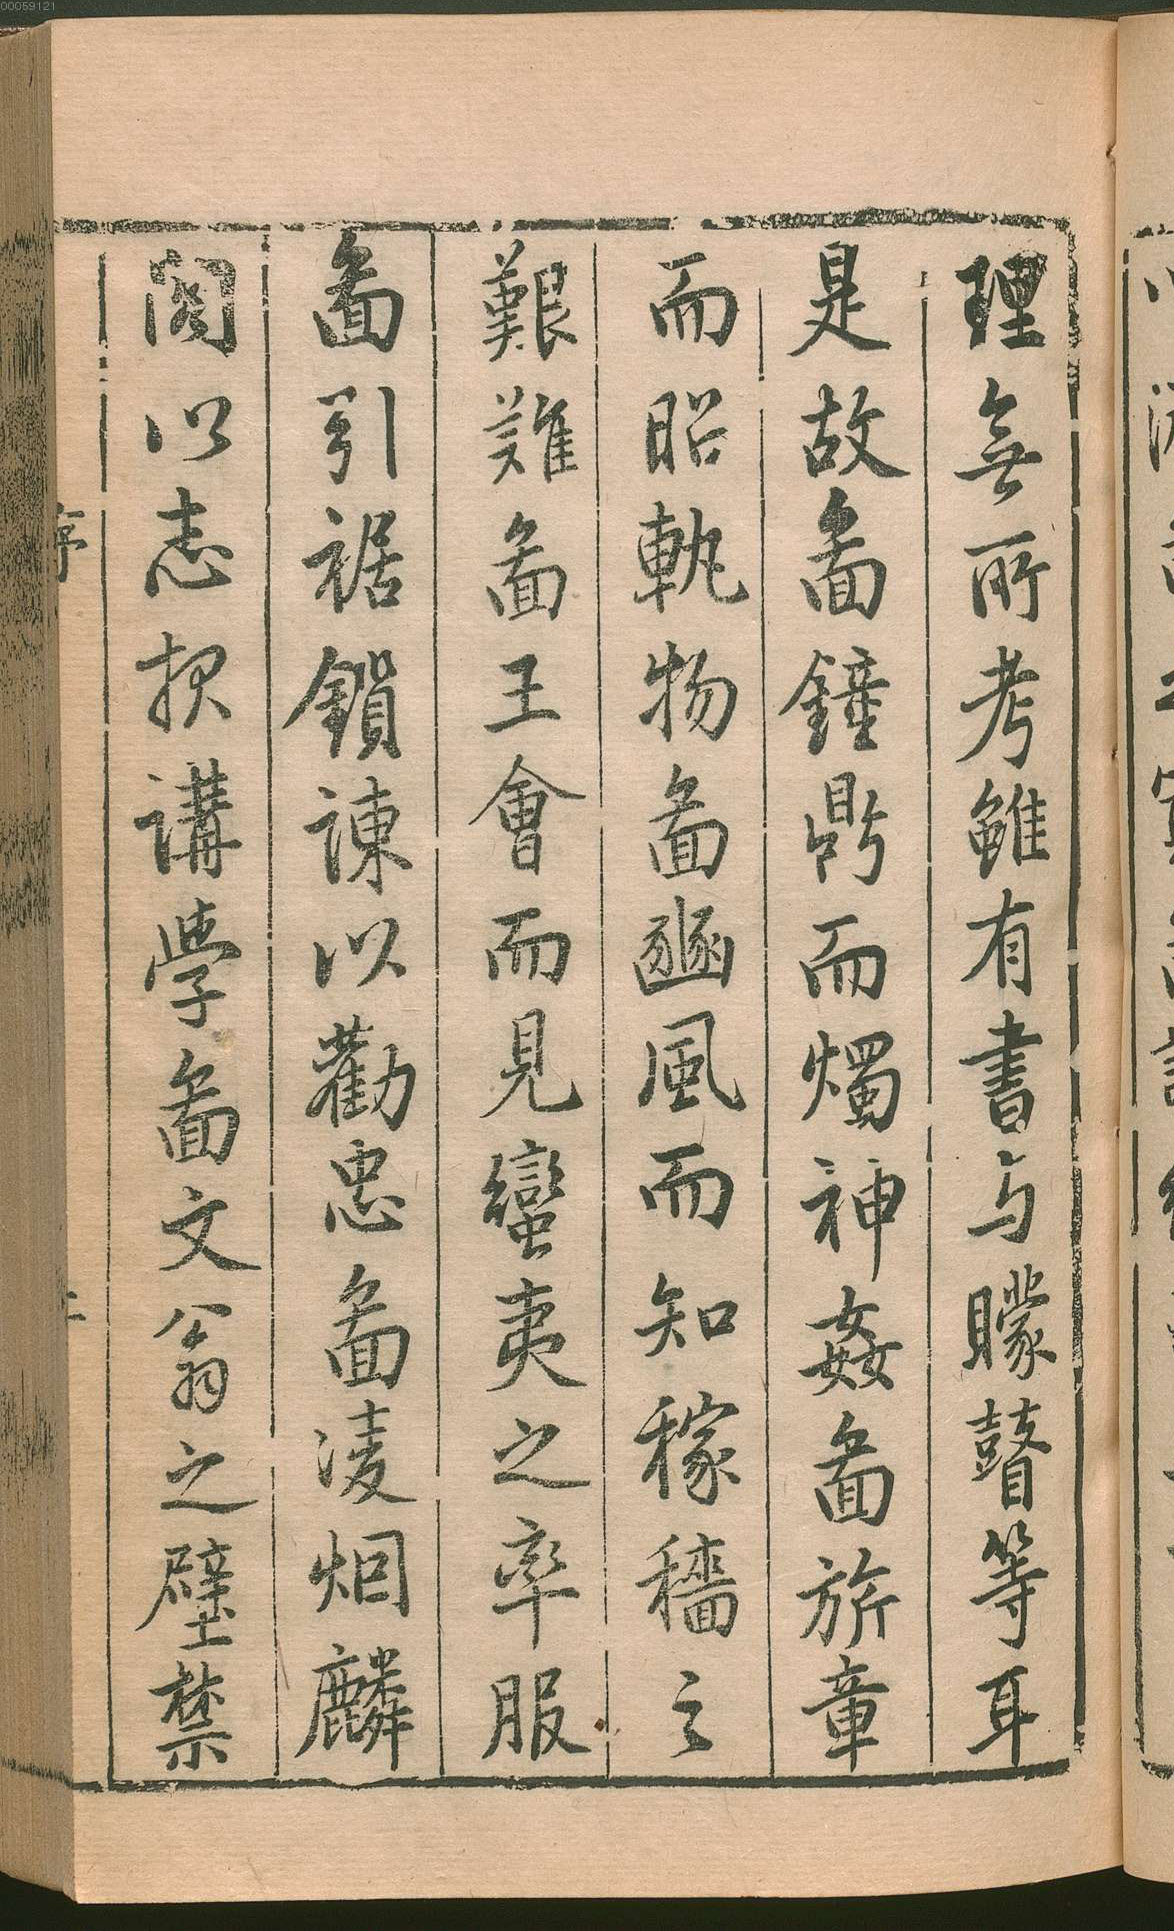 00059121
理無所考雖有書与矇瞽等耳
是故啚鐘鼎而燭神姦啚旂章
而昭軌物啚豳風而知稼穡之
艱難啚王會而見蠻夷之率服
啚引裾鎖諫以勸忠啚凌烟麟
閣以志報講學啚文翁之壁禁
序